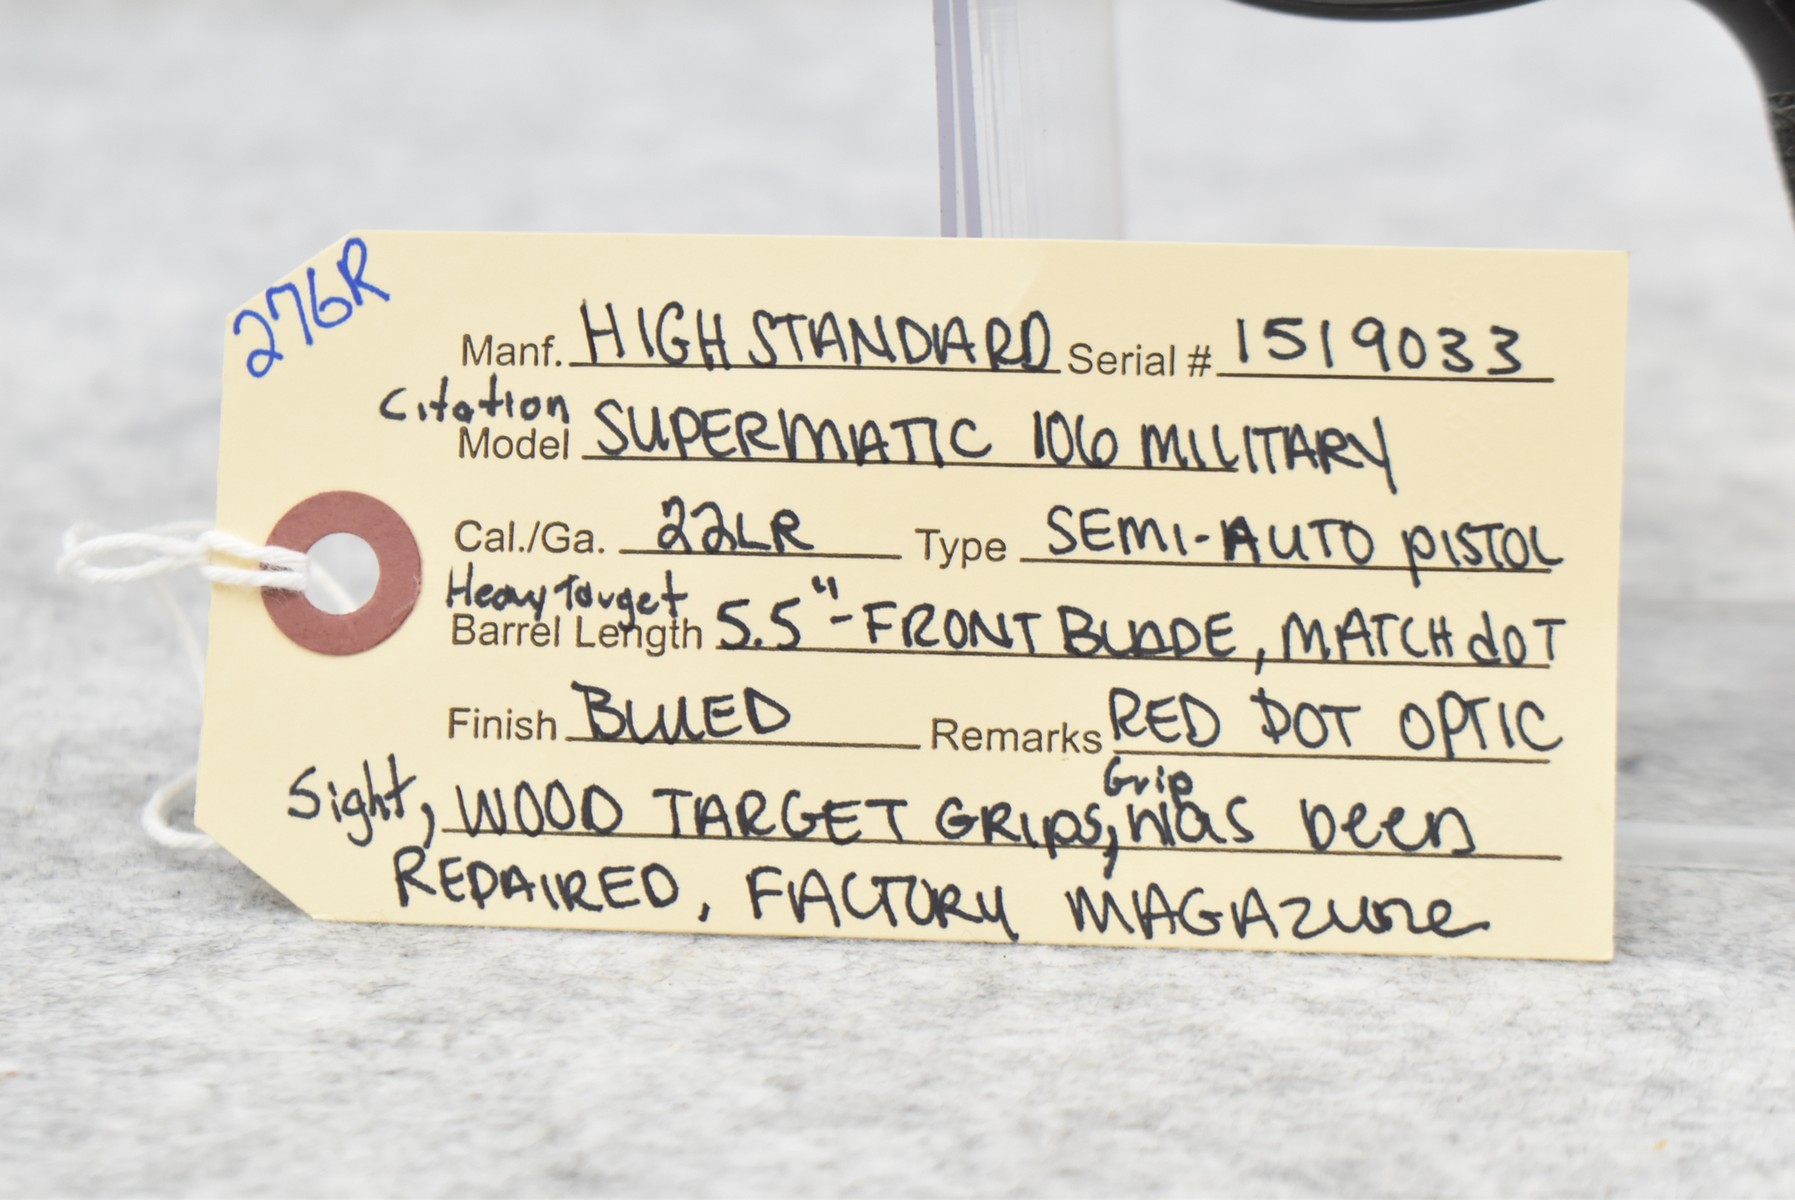 276R
Manf. HIGH STANDARD Serial # 1519033
Citation
Model SUPERMATIC 106 MILITARY
Cal./Ga. 22LR Type SEMI-AUTO PISTOL
Heavy Target
Barrel Length 5.5"-FRONT BLADE, MATCH dOT
Finish BLUED Remarks RED DOT OPTIC
Grip
Sight, WOOD TARGET GRIPS, Has been
REPAIRED, FACTORY MAGAZINE